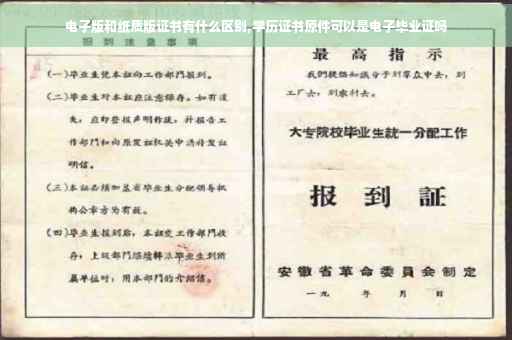 电子版和纸质版证书有什么区别,学历证书原件可以是电子毕业证吗
报到注意事项
(一)毕业生凭本证向工作部门报到。
(二)毕业生对本证应注意保存。如有遗
失,应即登报声明作废,并报告工
作部门和向原发证机关申请补发证
明信。
(三)本证必须加盖省毕业生分配领导机
构公章方为有效。
(四)毕业生报到后,本证交工作部门收
存;上级部门继续转派毕业生到所
属单位时,用本部门的介绍信。
最高指示
我们提倡知识分子到群众中去,到
工厂去,到农村去。
大专院校毕业生统一分配工作
报到証
安徽省革命委員会制定
一九 年 月 日